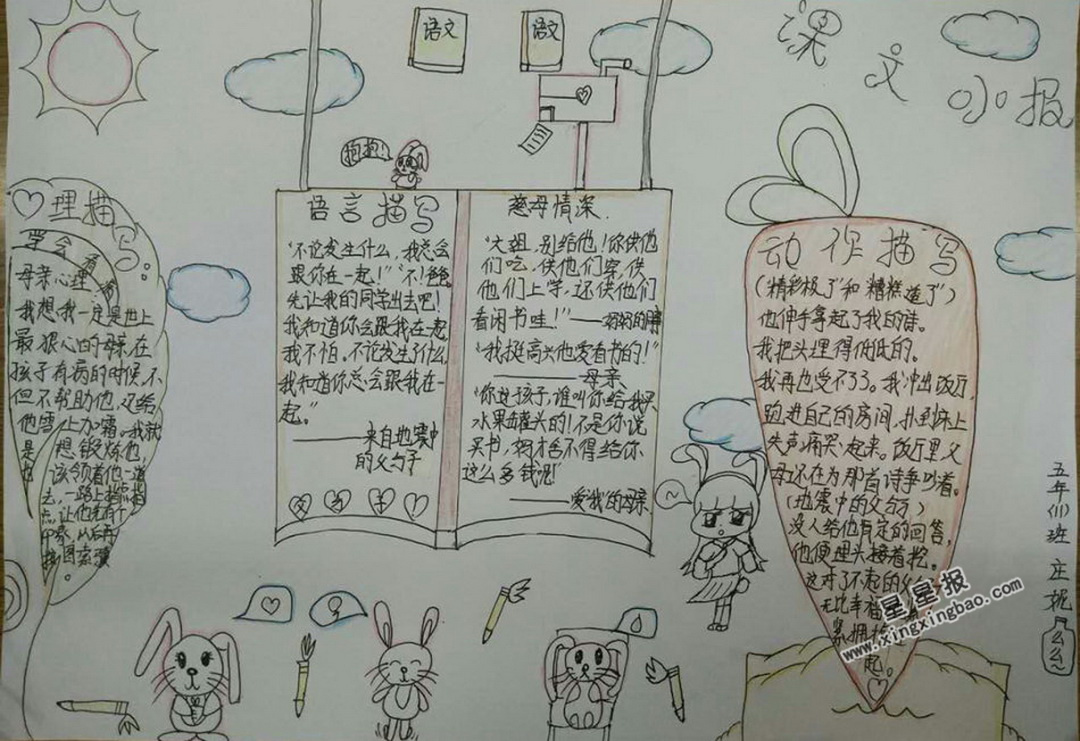 课文小报
语文
语文
抱抱!
理描写:
学会看病
母亲心理
我想我一定是世上
最狠心的母亲,在
孩子有病的时候,不
但不帮助他,还给
他雪上加霜。我就
是想锻炼他,也
该领着他一道
去,一路上指指
点点,让他先有个
语言描写
“不论发生什么,我总会
跟你在一起!”“不!爸爸,
先让我的同学出去吧!
我知道你会跟我在一起,
我不怕。不论发生了什么,
我知道你总会跟我在一
起。”
——来自地震中
的父与子
父与子
慈母情深.
“大姐,别给他!你供他
们吃,供他们穿,供
他们上学,还供他们
看闲书哇!”——妈妈的
“我挺高兴他爱看书的!”
——母亲
“你这孩子,谁叫你给我买
水果罐头的!不是你说
买书,妈才舍不得给你
这么多钱呢!
——爱我的母亲
动作描写
(“精彩极了”和“糟糕透了”)
他伸手拿起了我的诗。
我把头埋得低低的。
我再也受不了了。我冲出饭厅,
跑进自己的房间,扑到床上
失声痛哭起来。饭厅里,父
母还在为那首诗争吵着。
(地震中的父与子)
没人给他肯定的回答,
他便埋头接着挖。
这对了不起的父
无比幸福
紧拥抱
起。
五年(1)班
星星报
www.xingxingbao.com